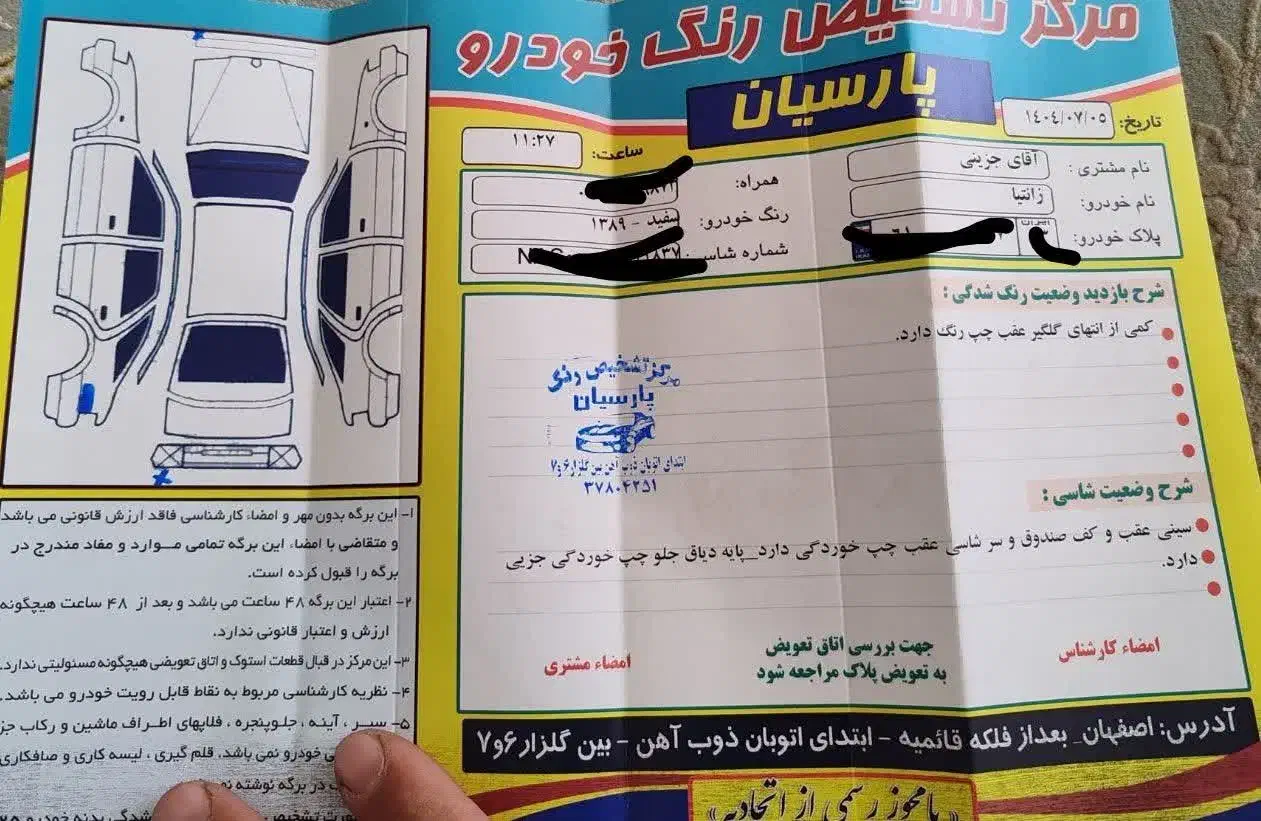 مرکز تشخیص رنگ خودرو
پارسیان
تاریخ: ۱۴۰۴/۰۷/۰۵
ساعت: ۱۱:۲۷
نام مشتری: آقای جزینی
همراه:
نام خودرو: زانتیا
رنگ خودرو: سفید - ۱۳۸۹
پلاک خودرو:
شماره شاسی:
شرح بازدید وضعیت رنگ شدگی:
کمی از انتهای گلگیر عقب چپ رنگ دارد.
مرکز تشخیص رنگ
پارسیان
ابتدای اتوبان ذوب آهن بین گلزار ۶و۷
۳۷۸۰۴۲۵۱
شرح وضعیت شاسی:
سینی عقب و کف صندوق و سر شاسی عقب چپ خوردگی دارد_پایه دیاق جلو چپ خوردگی جزیی
دارد.
امضاء کارشناس
جهت بررسی اتاق تعویض
به تعویض پلاک مراجعه شود
امضاء مشتری
آدرس: اصفهان_ بعداز فلکه قائمیه - ابتدای اتوبان ذوب آهن - بین گلزار ۶و۷
«با مجوز رسمی از اتحادیه»
۱- این برگه بدون مهر و امضاء کارشناسی فاقد ارزش قانونی می باشد
و متقاضی با امضاء این برگه تمامی موارد و مفاد مندرج در
برگه را قبول کرده است.
۲- اعتبار این برگه ۴۸ ساعت می باشد و بعد از ۴۸ ساعت هیچگونه
ارزش و اعتبار قانونی ندارد.
۳- این مرکز در قبال قطعات استوک و اتاق تعویضی هیچگونه مسئولیتی ندارد.
۴- نظریه کارشناسی مربوط به نقاط قابل رویت خودرو می باشد.
۵- سپر، آینه، جلوپنجره، فلاپهای اطراف ماشین و رکاب جز
خودرو نمی باشد. قلم گیری، لیسه کاری و صافکاری
در برگه نوشته
شدگی بدنه خودرو